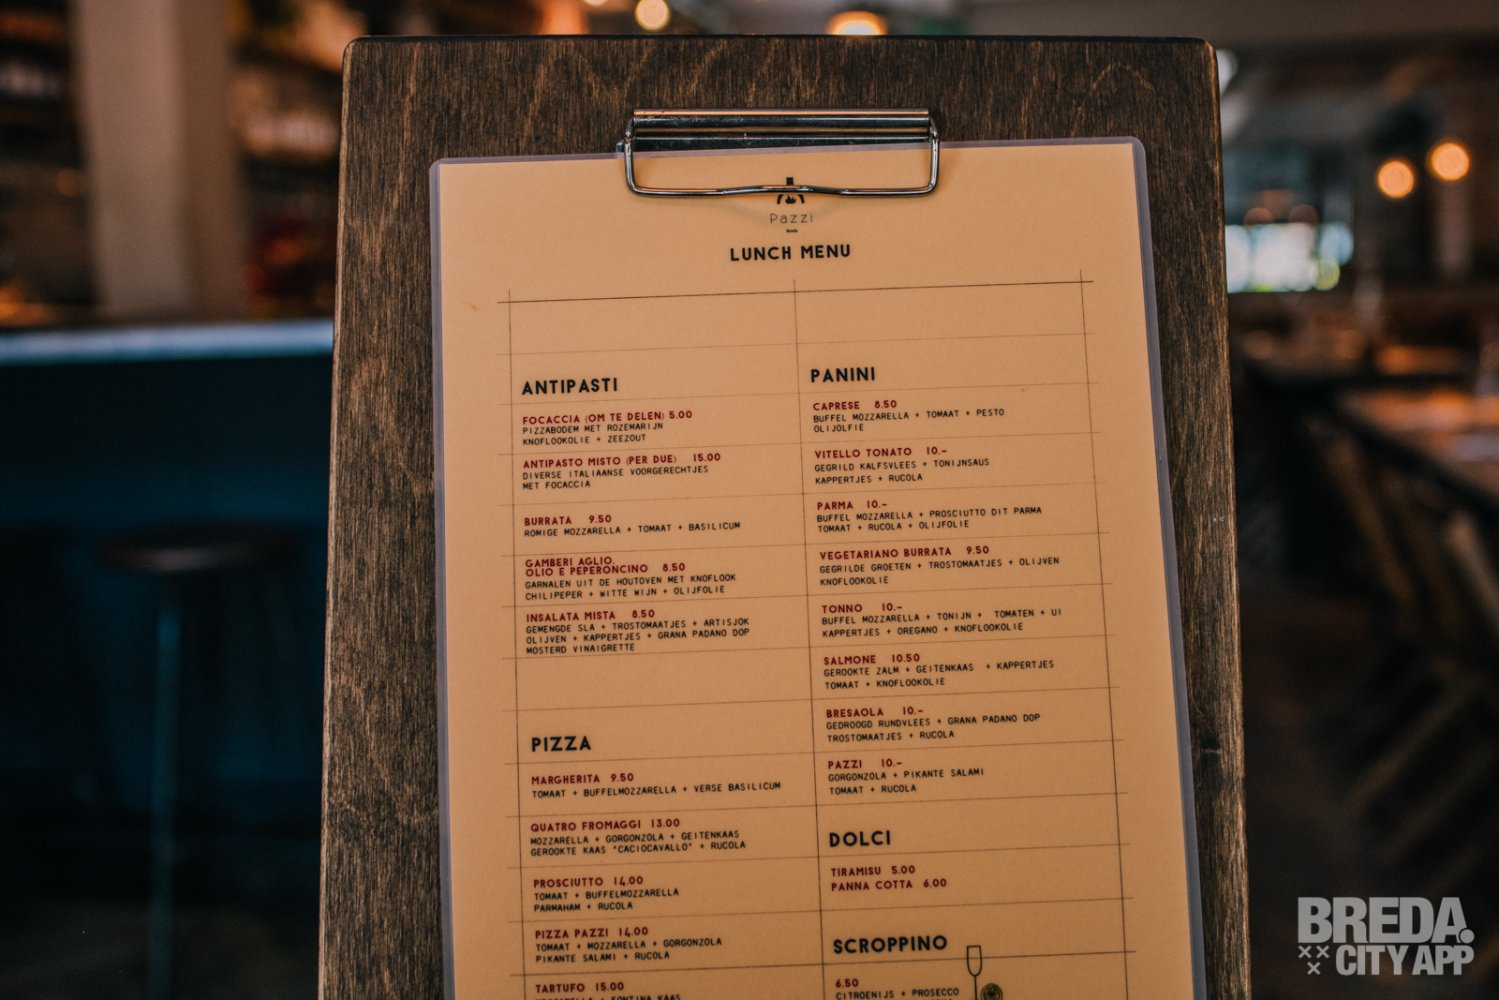 Pazzi
Breda
LUNCH MENU
ANTIPASTI
FOCACCIA (OM TE DELEN) 5.00
PIZZABODEM MET ROZEMARIJN
KNOFLOOKOLIE + ZEEZOUT
ANTIPASTO MISTO (PER DUE) 15.00
DIVERSE ITALIAANSE VOORGERECHTJES
MET FOCACCIA
BURRATA 9.50
ROMIGE MOZZARELLA + TOMAAT + BASILICUM
GAMBERI AGLIO,
OLIO E PEPERONCINO 8.50
GARNALEN UIT DE HOUTOVEN MET KNOFLOOK
CHILIPEPER + WITTE WIJN + OLIJFOLIE
INSALATA MISTA 8.50
GEMENGDE SLA + TROSTOMAATJES + ARTISJOK
OLIJVEN + KAPPERTJES + GRANA PADANO DOP
MOSTERD VINAIGRETTE
PIZZA
MARGHERITA 9.50
TOMAAT + BUFFELMOZZARELLA + VERSE BASILICUM
QUATRO FROMAGGI 13.00
MOZZARELLA + GORGONZOLA + GEITENKAAS
GEROOKTE KAAS "CACIOCAVALLO" + RUCOLA
PROSCIUTTO 14.00
TOMAAT + BUFFELMOZZARELLA
PARMAHAM + RUCOLA
PIZZA PAZZI 14.00
TOMAAT + MOZZARELLA + GORGONZOLA
PIKANTE SALAMI + RUCOLA
TARTUFO 15.00
MOZZARELLA + FONTINA KAAS
PANINI
CAPRESE 8.50
BUFFEL MOZZARELLA + TOMAAT + PESTO
OLIJOLFIE
VITELLO TONATO 10.-
GEGRILD KALFSVLEES + TONIJNSAUS
KAPPERTJES + RUCOLA
PARMA 10.-
BUFFEL MOZZARELLA + PROSCIUTTO DIT PARMA
TOMAAT + RUCOLA + OLIJFOLIE
VEGETARIANO BURRATA 9.50
GEGRILDE GROETEN + TROSTOMAATJES + OLIJVEN
KNOFLOOKOLIE
TONNO 10.-
BUFFEL MOZZARELLA + TONIJN + TOMATEN + UI
KAPPERTJES + OREGANO + KNOFLOOKOLIE
SALMONE 10.50
GEROOKTE ZALM + GEITENKAAS + KAPPERTJES
TOMAAT + KNOFLOOKOLIE
BRESAOLA 10.-
GEDROOGD RUNDVLEES + GRANA PADANO DOP
TROSTOMAATJES + RUCOLA
PAZZI 10.-
GORGONZOLA + PIKANTE SALAMI
TOMAAT + RUCOLA
DOLCI
TIRAMISU 5.00
PANNA COTTA 6.00
SCROPPINO
6.50
CITROENIJS + PROSECCO
BREDA.
CITY APP